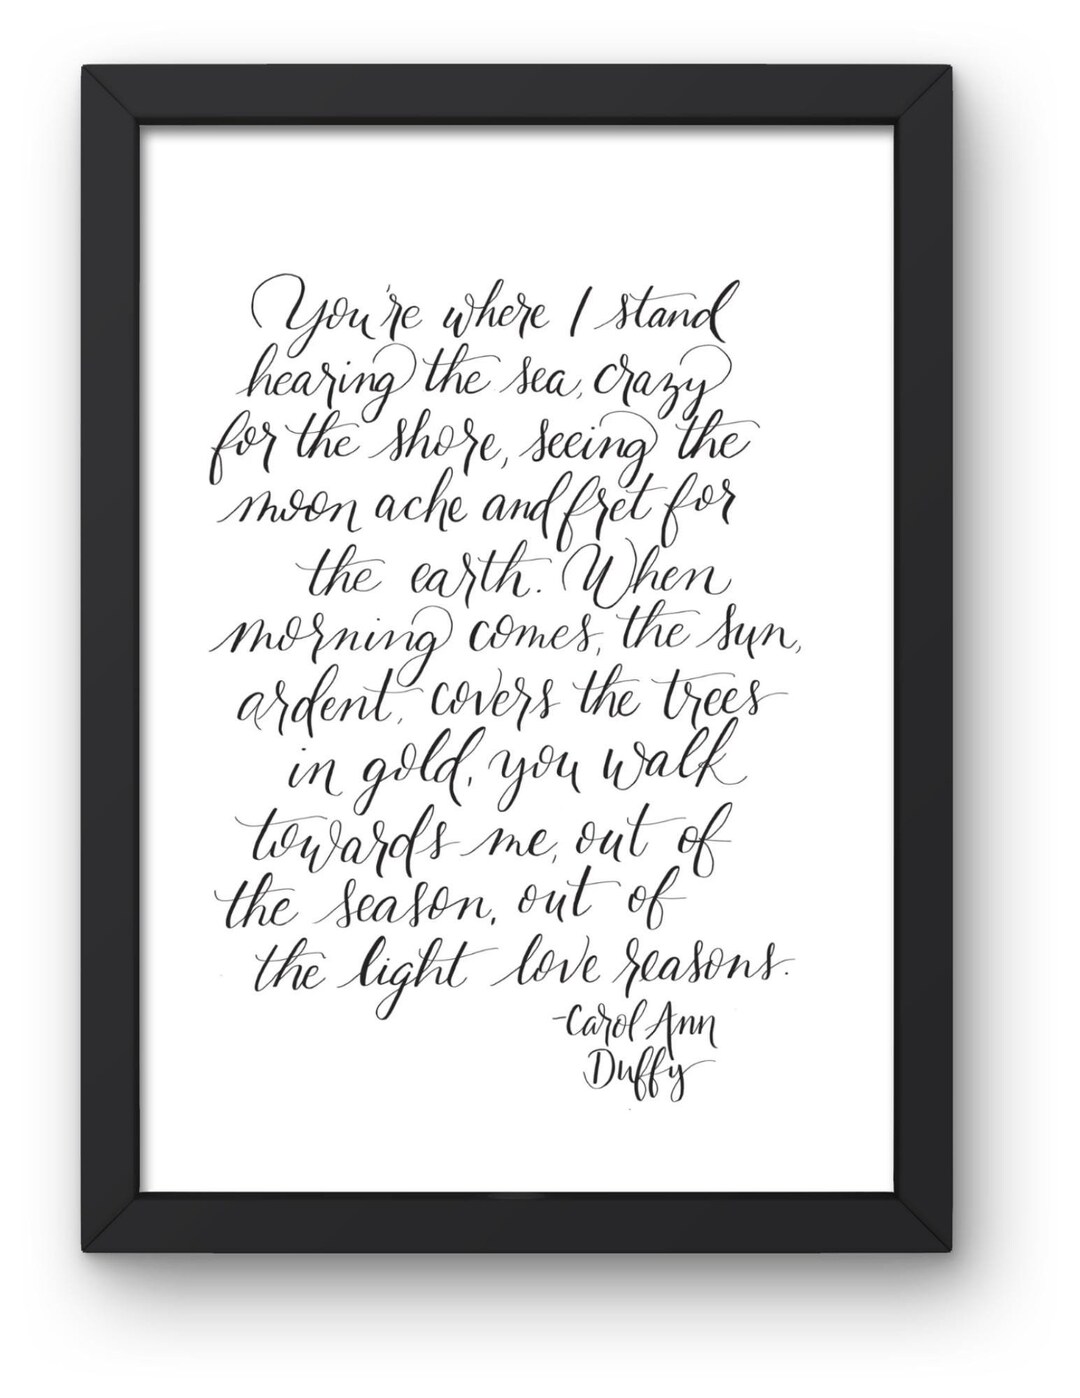 You're where I stand
hearing the sea, crazy
for the shore, seeing the
moon ache and fret for
the earth. When
morning comes, the sun,
ardent, covers the trees
in gold, you walk
towards me, out of
the season, out of
the light love reasons.
-Carol Ann
Duffy